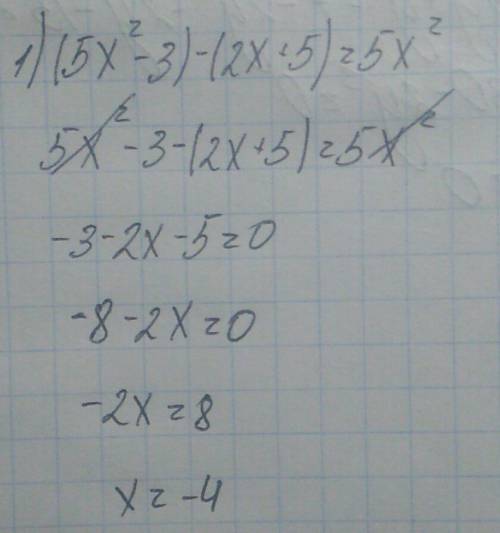 1) (5x² - 3) - (2x + 5) = 5x²
5x² - 3 - (2x + 5) = 5x²
-3 - 2x - 5 = 0
-8 - 2x = 0
-2x = 8
x = -4